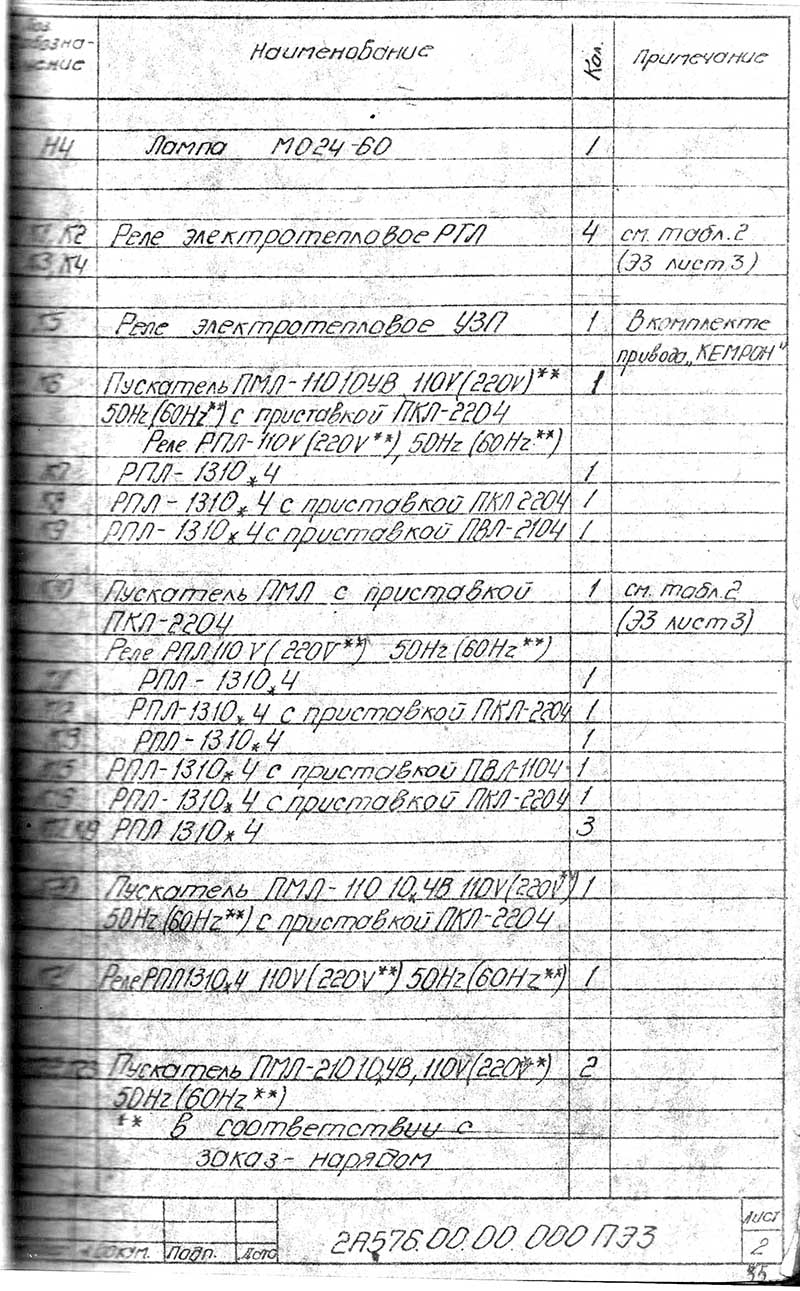 Наименование Кол. Примечание
Н4 Лампа МО24-60 1
К2 Реле электротепловое РТЛ 4 см. табл. 2
К3, К4 (ЭЗ лист 3)
К5 Реле электротепловое УЗП 1 В комплекте
привода „КЕМРОН"
К6 Пускатель ПМЛ-11010*4В, 110V(220V)** 1
50Hz(60Hz**) с приставкой ПКЛ-2204
Реле РПЛ-110V(220V**), 50Hz(60Hz**)
К7 РПЛ-1310*4 1
К8 РПЛ-1310*4 с приставкой ПКЛ 2204 1
К9 РПЛ-1310*4 с приставкой ПВЛ-2104 1
Пускатель ПМЛ с приставкой 1 см. табл. 2
ПКЛ-2204 (ЭЗ лист 3)
Реле РПЛ 110V(220V**) 50Hz(60Hz**)
РПЛ-1310*4 1
РПЛ-1310*4 с приставкой ПКЛ-2204 1
РПЛ-1310*4 1
РПЛ-1310*4 с приставкой ПВЛ-1104 1
РПЛ-1310*4 с приставкой ПКЛ-2204 1
РПЛ 1310*4 3
Пускатель ПМЛ-11010*4В 110V(220V**) 1
50Hz(60Hz**) с приставкой ПКЛ-2204
Реле РПЛ1310*4 110V(220V**) 50Hz(60Hz**) 1
Пускатель ПМЛ-21010*4В, 110V(220V**) 2
50Hz(60Hz**)
** в соответствии с
заказ-нарядом
Лист
2А576.00.00.000ПЭ3
2
Подп. Дата
35